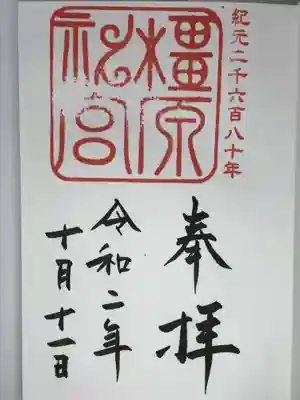 紀元二千六百八十年
橿原
神宮
奉拝
令和二年
十月十一日